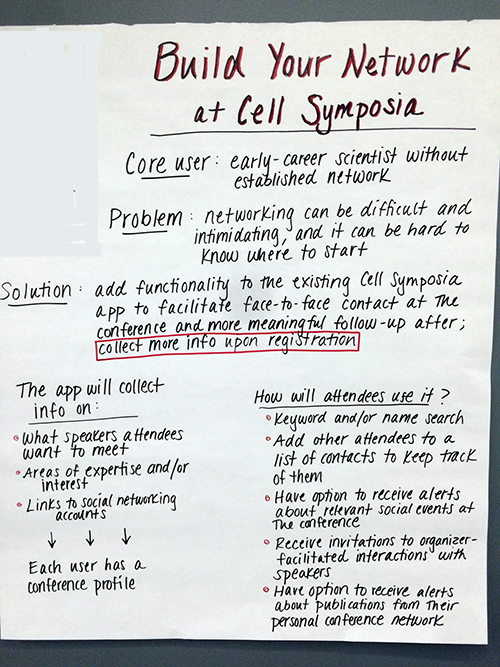 Build Your Network
at Cell Symposia
Core user: early-career scientist without
established network
Problem: networking can be difficult and
intimidating, and it can be hard to
know where to start
Solution: add functionality to the existing Cell Symposia
app to facilitate face-to-face contact at the
conference and more meaningful follow-up after;
collect more info upon registration
The app will collect
info on:
• What speakers attendees
want to meet
• Areas of expertise and/or
interest
• Links to social networking
accounts
↓ ↓ ↓
Each user has a
conference profile
How will attendees use it?
• Keyword and/or name search
• Add other attendees to a
list of contacts to keep track
of them
• Have option to receive alerts
about relevant social events at
the conference
• Receive invitations to organizer-
facilitated interactions with
speakers
• Have option to receive alerts
about publications from their
personal conference network